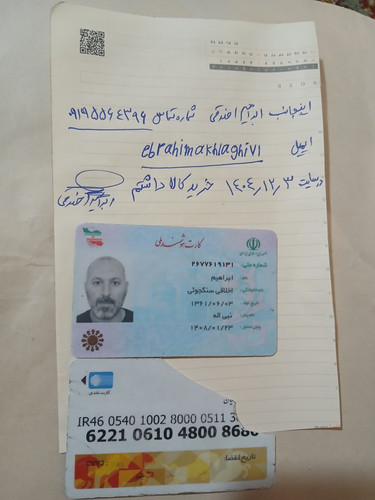 اینجانب ابراهیم اخلاقی شماره تماس ۹۱۹۵۵۶۴۳۹۶
ایمیل ebrahimakhlaghi71
در سایت ۱۴۰۴/۱۲/۳ خرید کالا داشتم
کارت هوشمند ملی
شماره ملی: ۲۶۷۷۶۱۹۱۳۱
نام: ابراهیم
نام خانوادگی: اخلاقی سنگجوئی
تاریخ تولد: ۱۳۶۱/۰۶/۰۳
نام پدر: نبی اله
پایان اعتبار: ۱۴۰۸/۰۱/۲۳
IR46 0540 1002 8000 0511 3
6221 0610 4800 868
تاریخ انقضا: